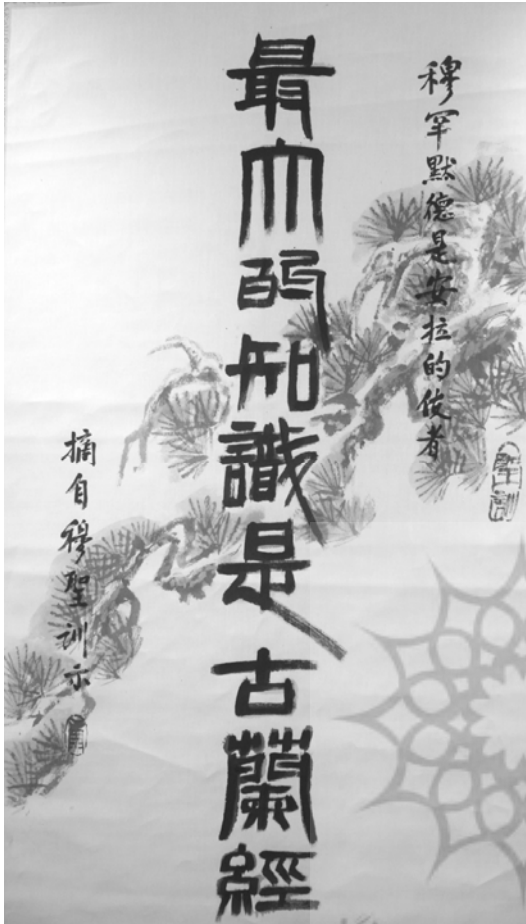 穆罕默德是安拉的使者
聖訓
最大的知識是古蘭經
摘自穆聖訓示